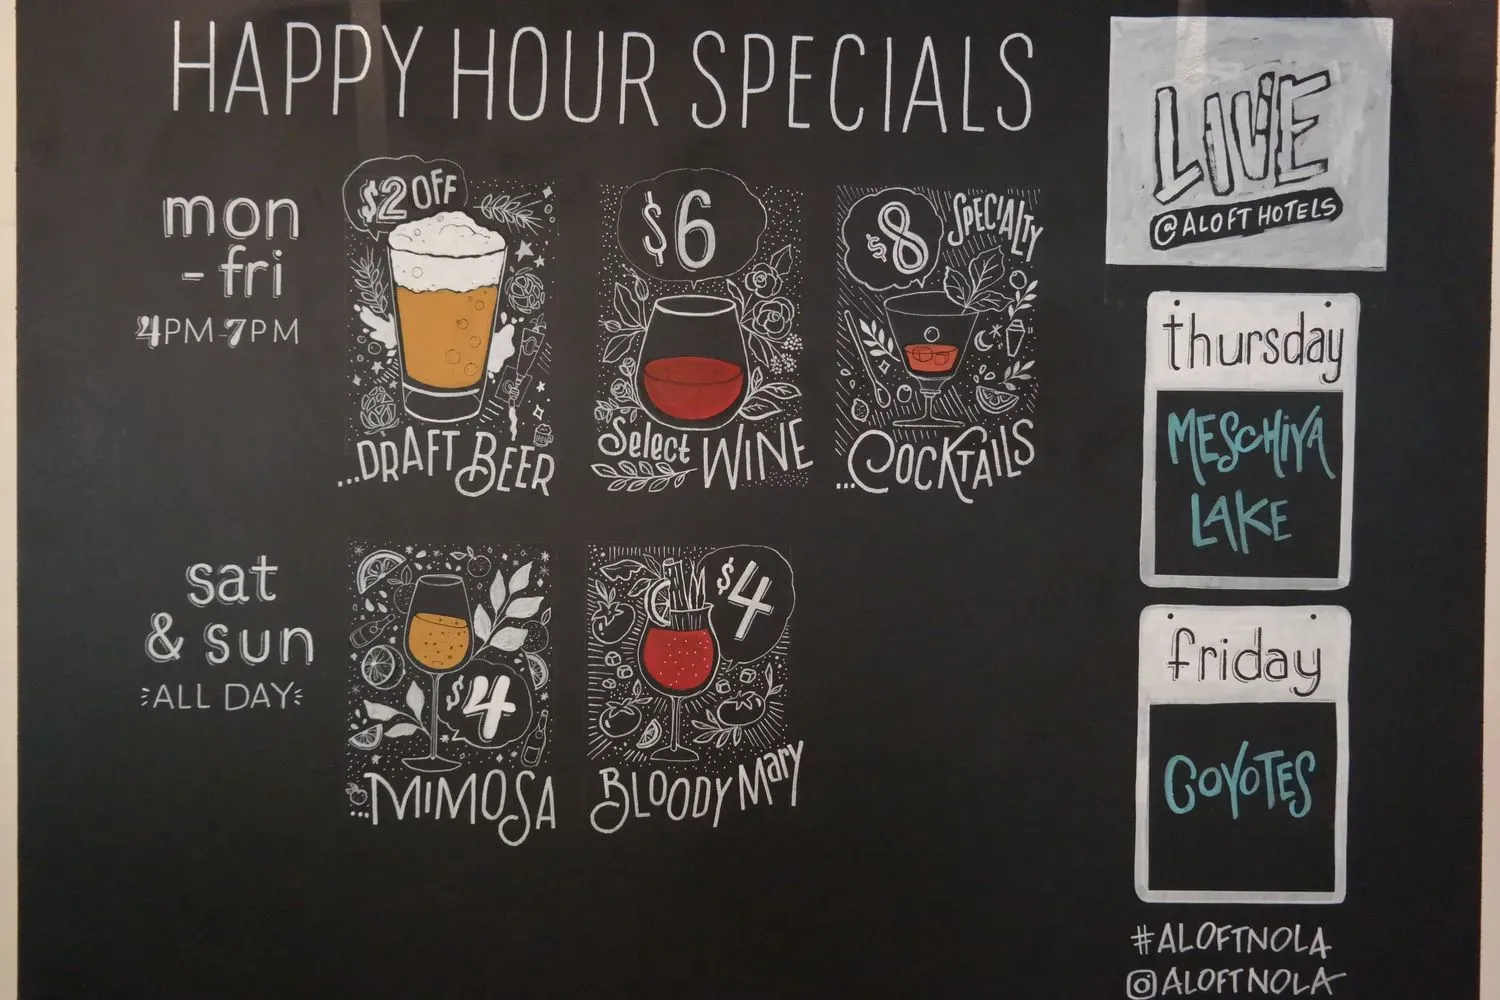 HAPPY HOUR SPECIALS
mon
- fri
4PM-7PM
$2 OFF
...DRAFT BEER
$6
Select WINE
$8
SPECIALTY
...COCKTAILS
sat
& sun
ALL DAY
$4
...MIMOSA
$4
BLOODY Mary
LIVE
@ALOFT HOTELS
thursday
MESCHIYA
LAKE
friday
COYOTES
#ALOFTNOLA
ALOFTNOLA